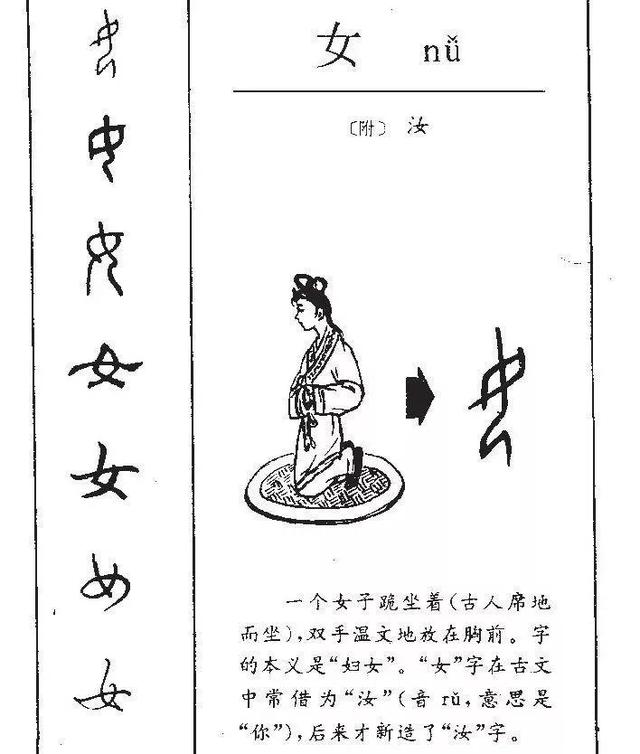 女 nǚ
〔附〕 汝
一个女子跪坐着(古人席地
而坐),双手温文地放在胸前。字
的本义是“妇女”。“女”字在古文
中常借为“汝”(音rǔ,意思是
“你”),后来才新造了“汝”字。
女
女
女
女
女
女
女
女